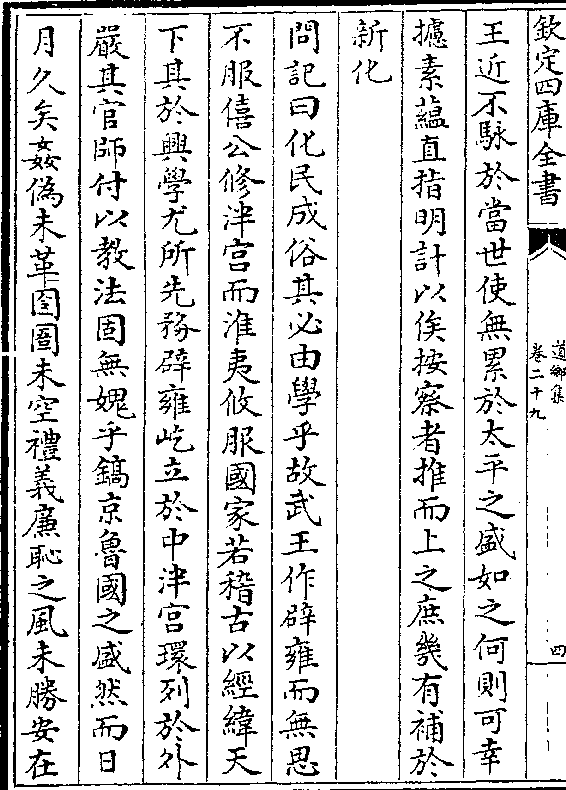 欽定四庫全書
道鄉集
卷二十九
四
王近不駭於當世使無累於太平之盛如之何則可幸
攄素藴直指明計以俟按察者推而上之庶幾有補於
新化
問記曰化民成俗其必由學乎故武王作辟雍而無思
不服僖公修泮宫而淮夷攸服國家若稽古以經緯天
下其於興學尤所先務辟雍屹立於中泮宫環列於外
嚴其官師付以教法固無媿乎鎬京魯國之盛然而日
月久矣姦偽未革囹圄未空禮義廉恥之風未勝安在